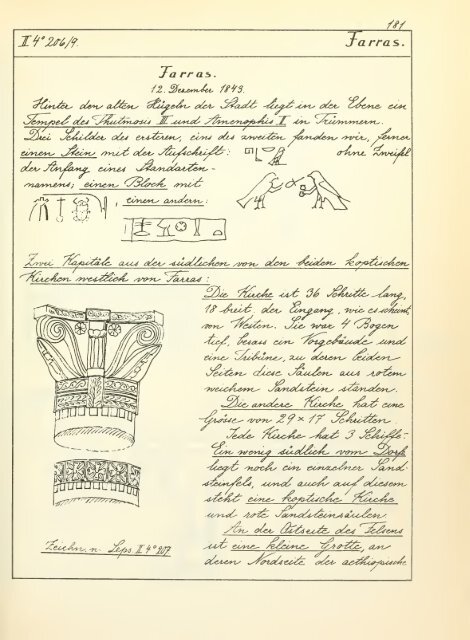 181
II 4° 206/7.
Farras.
Farras.
12. Dezember 1843.
Hinter den alten Hügeln der Stadt liegt in der Ebene ein
Tempel des Thutmosis III und Amenophis II in Trümmern.
Drei Schilder des ersteren, eins des zweiten fanden wir, ferner
einen Stein mit der Aufschrift: ohne Zweifel
der Anfang eines Standarten-
namens; einen Block mit
, einen andern:
Zwei Kapitäle aus der südlichen von den beiden koptischen
Kirchen westlich von Farras:
Die Kirche ist 36 Schritte lang,
18 breit, der Eingang, wie es scheint,
von Westen. Sie war 4 Bogen
tief, besass ein Vorgebäude und
eine Tribüne, zu deren beiden
Seiten diese Säulen aus rotem
weichem Sandstein standen.
Die andere Kirche hat eine
Grösse von 29 x 17 Schritten.
Jede Kirche hat 3 Schiffe.
Ein wenig südlich vom Dorfe
liegt noch ein einzelner Sand-
steinfels, und auch auf diesem
steht eine koptische Kirche
und rote Sandsteinsäulen.
An der Ostseite des Felsens
ist eine kleine Grotte, an
deren Nordseite der aethiopische
Zeichn. n. Leps. II 4° 207.